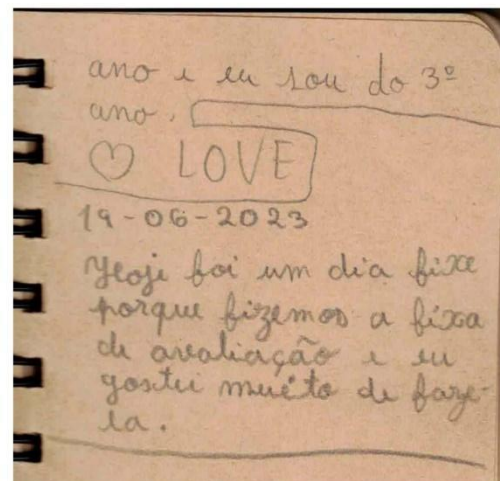 ano e eu sou do 3º
ano.
♡ LOVE
19-06-2023
Hoje foi um dia fixe
porque fizemos a fixa
de avaliação e eu
gostei muito de faze-
la.